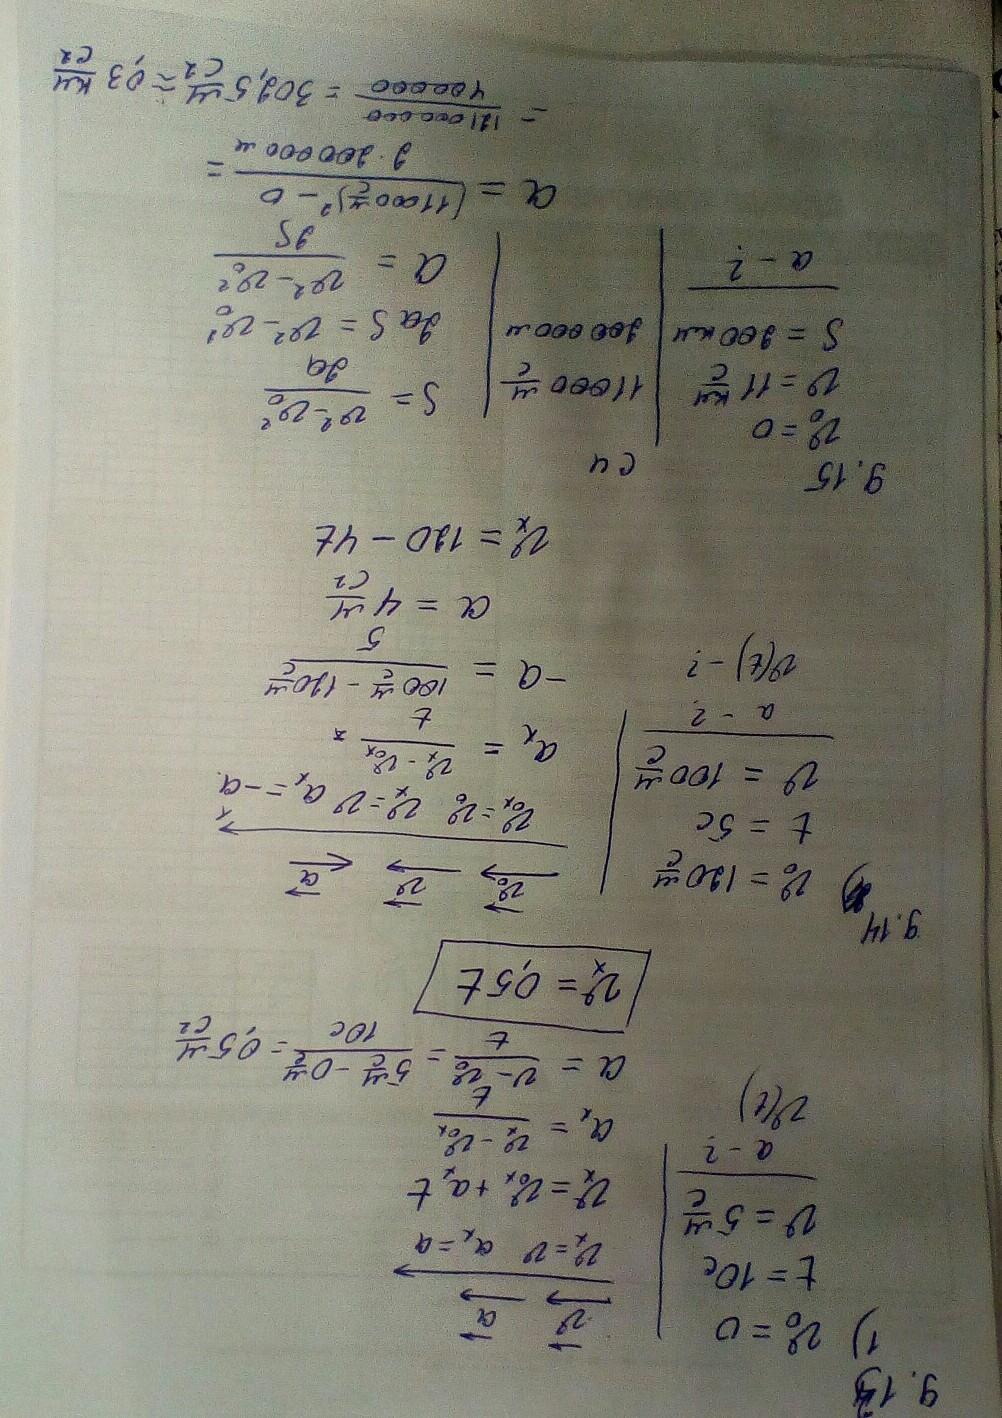 9.13
1) v₀ = 0
t = 10c
v = 5 м/c
a - ?
v(t)
v⃗ a⃗
vₓ = v aₓ = a
vₓ = v₀ₓ + aₓt
aₓ = (vₓ - v₀ₓ)/t
a = (v - v₀)/t = (5 м/c - 0 м/c)/10c = 0,5 м/c²
vₓ = 0,5t
9.14
v₀ = 120 м/c
t = 5c
v = 100 м/c
a - ?
v(t) - ?
v⃗₀ v⃗ a⃗
x
v₀ₓ = v₀ vₓ = v aₓ = -a
aₓ = (vₓ - v₀ₓ)/t =
-a = (100 м/c - 120 м/c)/5
a = 4 м/c²
vₓ = 120 - 4t
9.15
си
v₀ = 0
v = 11 км/c 11000 м/c
S = 200 км 200 000 м
a - ?
S = (v² - v₀²)/2a
2aS = v² - v₀²
a = (v² - v₀²)/2S
a = ((11000 м/c)² - 0)/(2 · 200 000 м) =
= 121 000 000/400 000 = 302,5 м/c² ≈ 0,3 км/c²